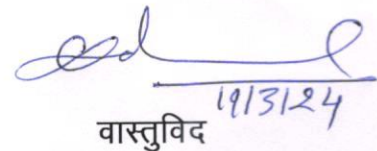 19/3/24
वास्तुविद